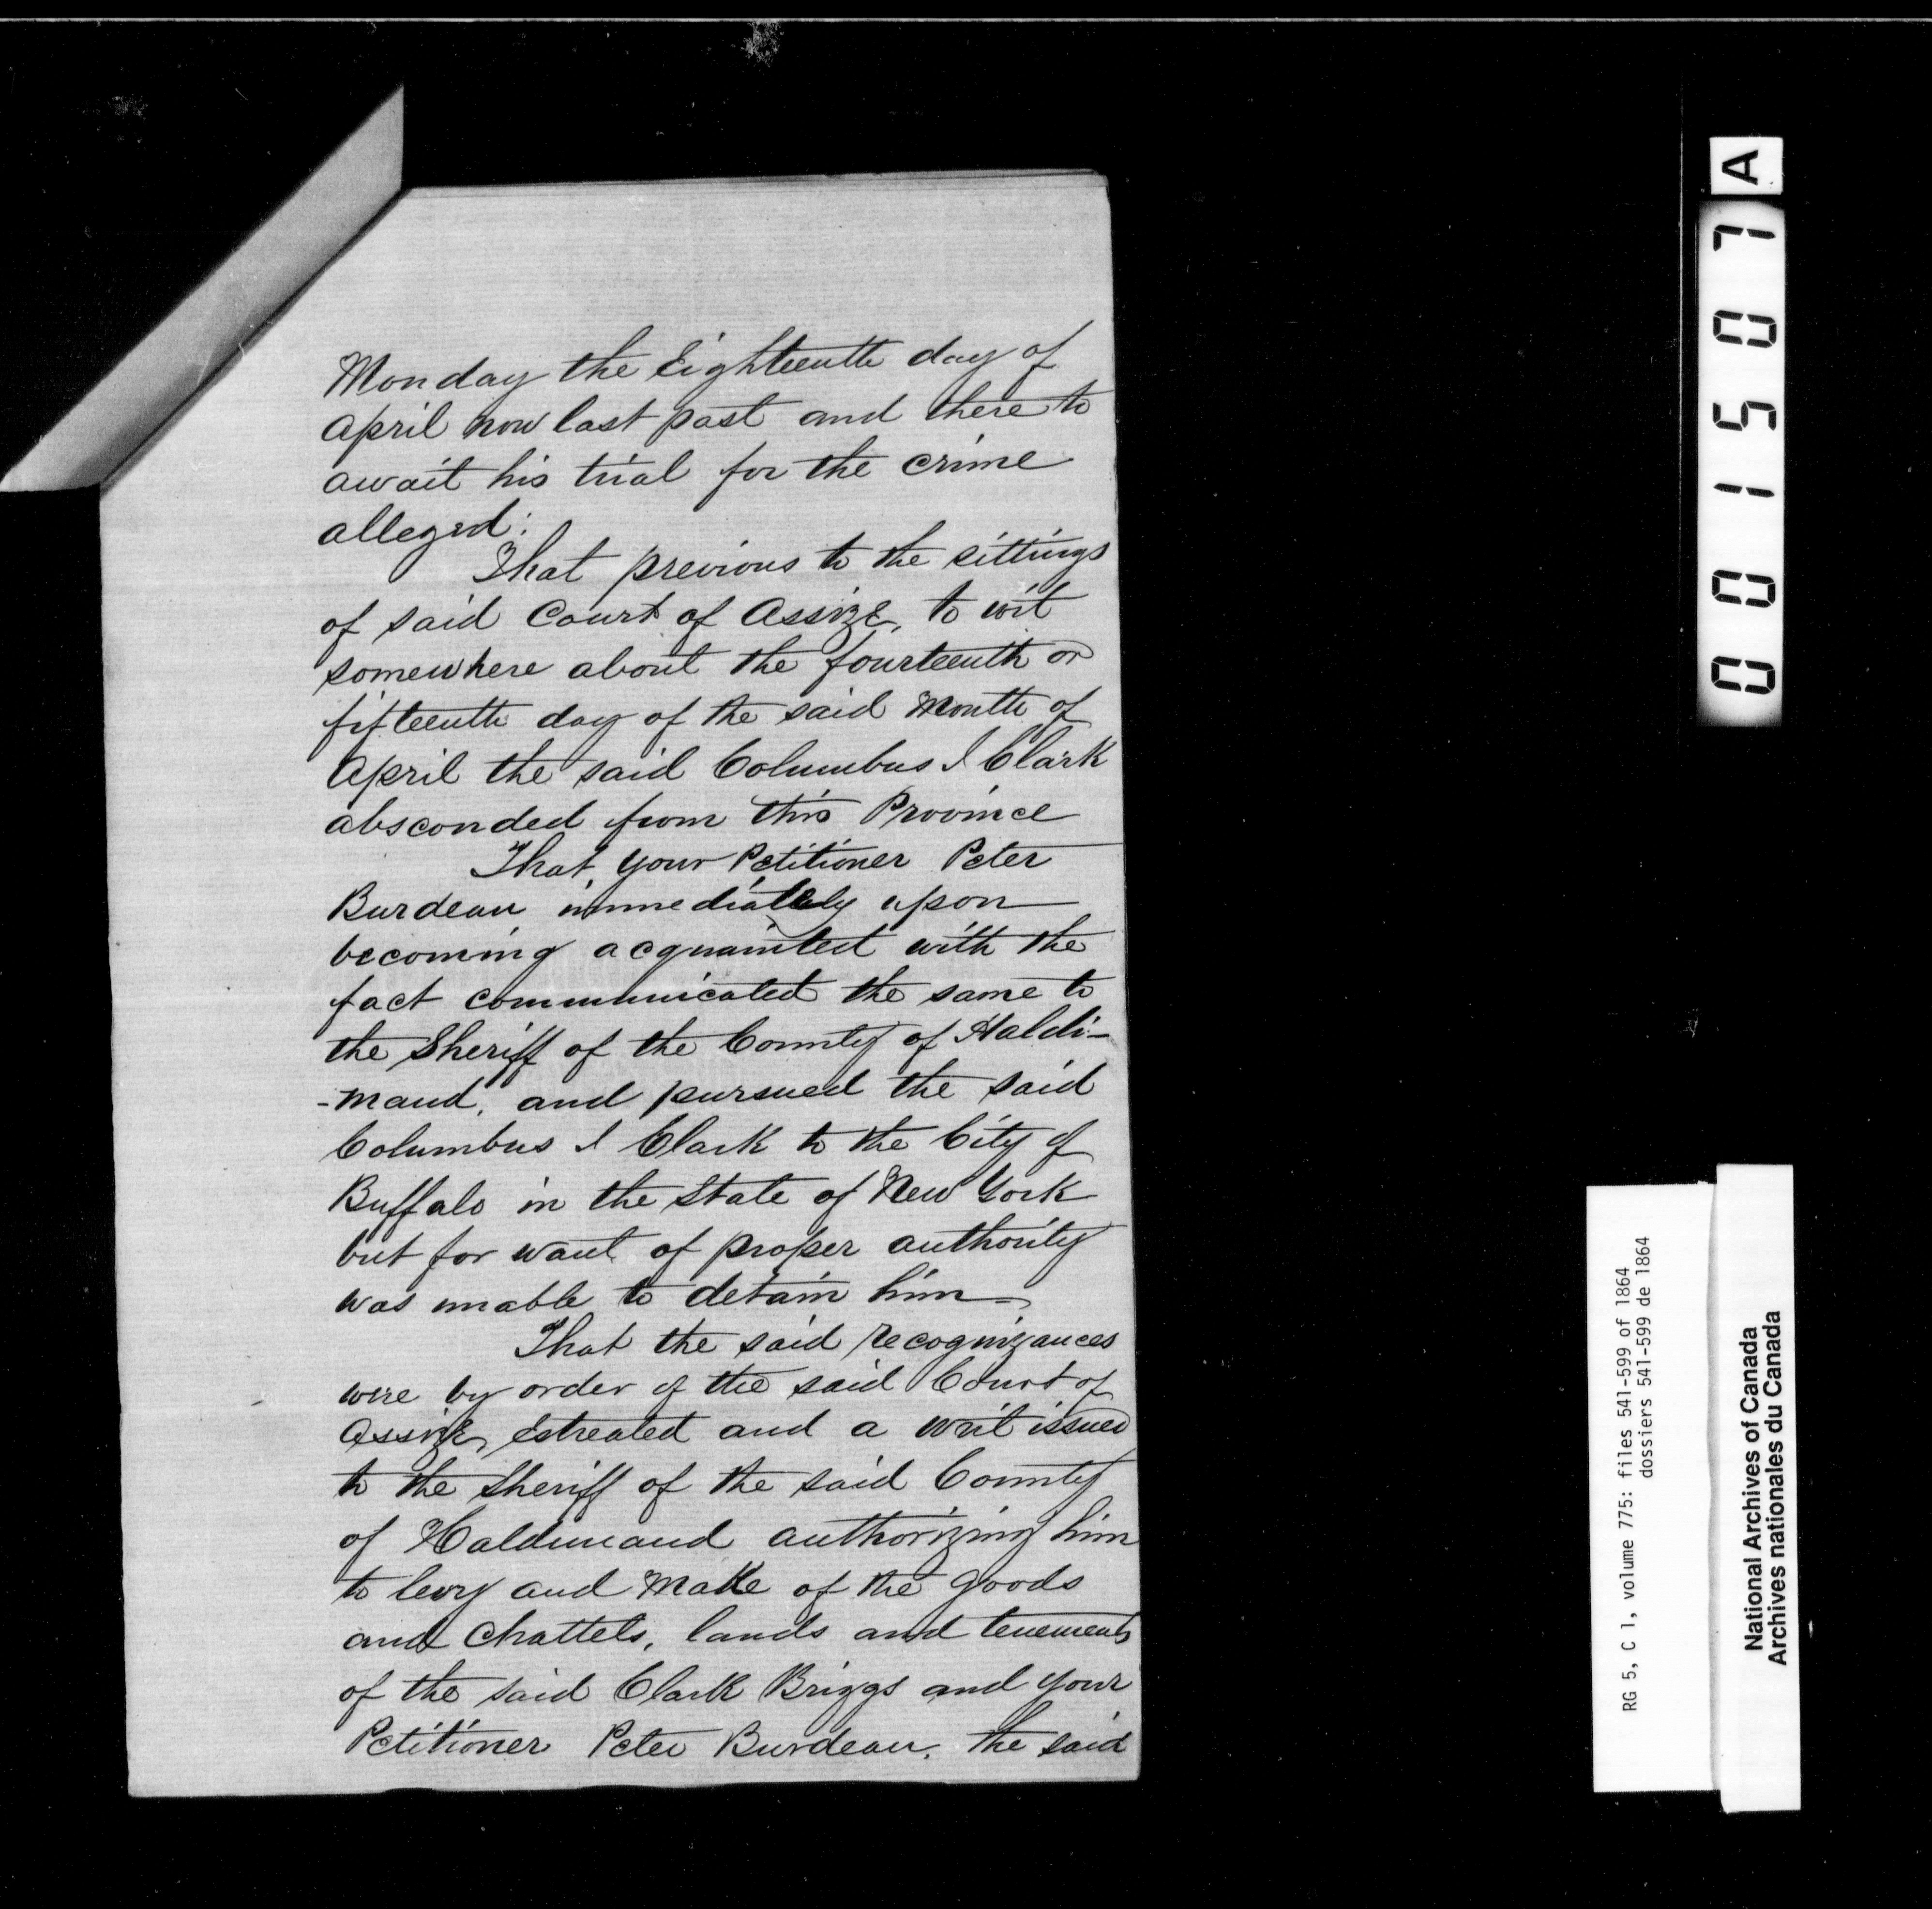 Monday the Eighteenth day of
April now last past and there to
await his trial for the crime
alleged:
That previous to the sittings
of said Court of Assize, to wit
somewhere about the fourteenth or
fifteenth day of the said Month of
April the said Columbus I Clark
absconded from this Province
That, your Petitioner Peter
Burdeau immediately upon
becoming acquainted with the
fact communicated the same to
the Sheriff of the County of Haldi-
-mand, and pursued the said
Columbus I Clark to the City of
Buffalo in the State of New York
but for want of proper authority
was unable to detain him
That the said recognizances
were by order of the said Court of
Assize, estreated and a writ issued
to the Sheriff of the said County
of Haldimand authorizing him
to levy and make of the goods
and chattels, lands and tenements
of the said Clark Briggs and your
Petitioner Peter Burdeau, the said
001507 A
RG 5, C 1, volume 775: files 541-599 of 1864
dossiers 541-599 de 1864
National Archives of Canada
Archives nationales du Canada